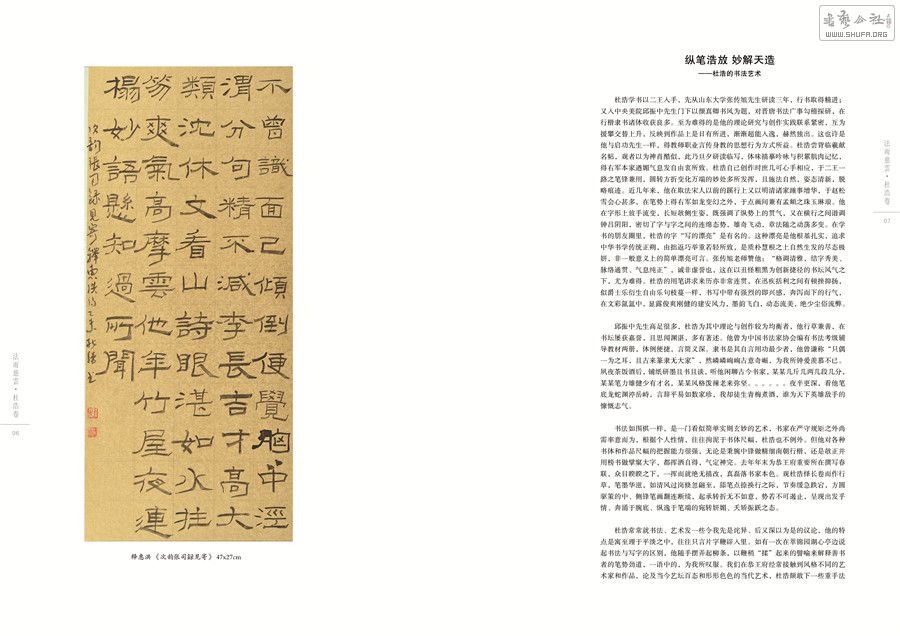 書藝公社
WWW.SHUFA.ORG
不曾識面已傾倒便覺胸中涇
渭分句精不減李長吉才高大
類沈休文看山詩眼湛如水拄
笏爽氣高摩雲他年竹屋夜連
榻妙語懸知過所聞
次韵張司録見寄 釋惠洪詩 乙未秋
释惠洪 《次韵张司録见寄》 47x27cm
法雨慈雲·杜浩卷
06
纵笔浩放 妙解天造
——杜浩的书法艺术
杜浩学书以二王入手，先从山东大学张传旭先生研读三年，行书取得精进；
又入中央美院邱振中先生门下以颜真卿书风为题，对晋唐书法广事勾稽探研，在
行楷隶书诸体收获良多。至为难得的是他的理论研究与创作实践联系紧密，互为
援攀交替上升，反映到作品上是日有所进，渐渐超能入逸，赫然独出。这也许是
他与启功先生一样，得教师职业言传身教的思想行为方式所益。杜浩尝背临羲献
名帖，观者以为神肖酷似，此乃旦夕研读临写，体味描摹吟咏与积累肌肉记忆，
得右军本家遒媚气息发自由衷所致。杜浩自己创作时庶几可心手相应，于二王一
路之笔锋兼用，圆转方折变化万端的妙处多所发挥，且施法自然，姿态清新，脱
略痕迹。近几年来，他在取法宋人以前的蹊行上又以明清诸家踵事增华，于赵松
雪会心甚多，在笔势上得右军如龙变幻之外，于点画间兼有孟頫之珠玉琳琅。他
在字形上放手流变，长短欹侧生姿，既强调了纵势上的贯气，又在横行之间谐调
钟吕阴阳，密切了字与字之间的连绵态势，雄奇飞动，章法随之动荡多变。在学
书的朋友圈里，杜浩的字“写的漂亮”是有名的。这种漂亮是他根基扎实，追求
中华书学传统正朔，由拙返巧举重若轻所致，是质朴慧根之上自然生发的尽态极
妍，非一般意义上的简单漂亮可言。张传旭老师赞他：“格调清雅，结字秀美、
脉络通贯、气息纯正”，诚非虚誉也，这在以丑怪粗黑为创新捷径的书坛风气之
下，尤为难得。杜浩的用笔讲求来历亦非常连贯，在迅疾括利之间有顿挫抑扬，
似爵士乐衍生自由乐句枝蔓一样，书写中带有强烈的即兴感，奔泻而下的行气，
在文彩氤氲中，显露俊爽刚健的建安风力，墨韵飞白，动态流美，绝少尘俗流弊。
邱振中先生高足很多，杜浩为其中理论与创作较为均衡者，他行草兼善，在
书坛屡获嘉誉，且思闻渊湛，多有著述。他曾为中国书法家协会编有书法考级辅
导教材两册，体例便捷，言简义深。隶书是其自言用功最少者，他曾谦称“只偶
一为之耳，且古来篆隶无大家”，然嶙嶙峋峋古意奇崛，为我所钟爱羡慕不已。
夙夜茶饭酒后，铺纸研墨且书且谈，听他闲聊古今书家，某某几斤几两几段几分，
某某笔力雄健少有才名，某某风格泼辣老来弥坚。。。。。。夜半更深，看他笔
底龙蛇渊渟岳峙，言辞平易如数家珍，我却徒生青梅煮酒，谁为天下英雄敌手的
慷慨志气。
书法如围棋一样，是一门看似简单实则玄妙的艺术，书家在严守规矩之外尚
需率意而为，根据个人性情，往往拘泥于书体尺幅，杜浩也不例外。但他对各种
书体和作品尺幅的把握能力很强，无论是秉腕中锋做精细南朝行楷，还是敢正并
用榜书做擘窠大字，都挥洒自得，气定神完。去年年末为恭王府重要所在撰写春
联，众目睽睽之下，一挥而就绝无描改，真磊落书家本色。观杜浩怿长卷而作行
草，笔墨华滋，如清风过岗倏忽翩至，舔笔点捺换行之际，节奏缓急跌宕，方圆
驱策的中、侧锋笔画翻连断续，起承转折无不如意，势若不可遏止，呈现出发乎
情、奔涌于腕底、纵逸于笔端的宛转妍媚、夭矫振跃之态。
杜浩常常就书法、艺术发一些令我先是诧异、后又深以为是的议论，他的特
点是寓至理于平淡之中，往往只言片字鞭辟入里。如有一次在萃锦园湖心亭边说
起书法与写字的区别，他随手摆弄起柳条，以鞭梢“揉”起来的譬喻来解释善书
者的笔势劲道，一语中的，为我所叹服。我们在恭王府经常接触到风格不同的艺
术家和作品，论及当今艺坛百态和形形色色的当代艺术，杜浩颇敢下一些重手法
法雨慈雲·杜浩卷
07